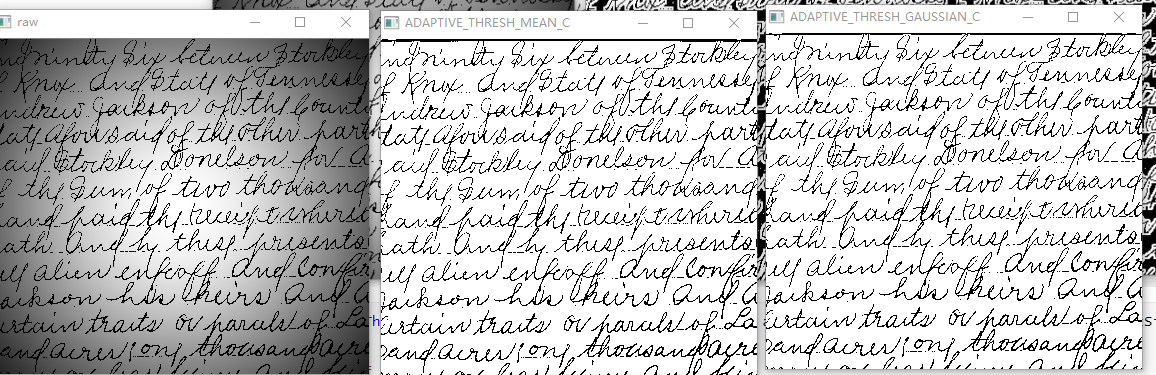 raw
ADAPTIVE_THRESH_MEAN_C
ADAPTIVE_THRESH_GAUSSIAN_C
Ninety Six between Stockley
Knox And State of Tennessee
Andrew Jackson of the County
State aforesaid of the other part
Stockley Donelson for
of the Sum of two thousand
hand paid the receipt where
hath And by these presents
alien enfeoff And Confir
Jackson his heirs And
certain tracts or parcels of La
sand acres one thousand acre
Ninety Six between Stockley
Knox And State of Tennessee
Andrew Jackson of the County
State aforesaid of the other part
Stockley Donelson for
of the Sum of two thousand
hand paid the receipt where
hath And by these presents
alien enfeoff And Confir
Jackson his heirs And
certain tracts or parcels of La
sand acres one thousand acre
Ninety Six between Stockley
Knox And State of Tennessee
Andrew Jackson of the County
State aforesaid of the other part
Stockley Donelson for
of the Sum of two thousand
hand paid the receipt where
hath And by these presents
alien enfeoff And Confir
Jackson his heirs And
certain tracts or parcels of La
sand acres one thousand acre